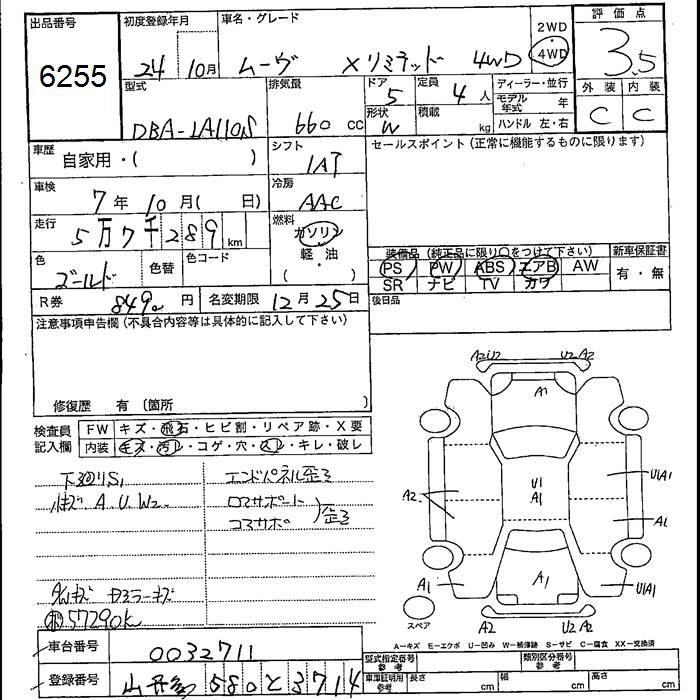 出品番号 初度登録年月 車名・グレード 2WD 評価点
6255 24 10月 ムーヴ Xリミテッド 4WD 4WD 3.5
型式 排気量 ドア 定員 ディーラー・並行 外装 内装
DBA-LA110S 660 cc 5 4人 モデル年式 年 C C
形状 W 積載 kg ハンドル 左・右
車歴 シフト セールスポイント(正常に機能するものに限ります)
自家用・( ) IAT
車検 冷房
7年 10月( 日) AAC
走行 燃料
5万7千289 km ガソリン
色 色替 色コード 軽・油 装備品(純正品に限り○をつけて下さい) 新車保証書
ゴールド ( ) PS PW ABS エアB AW 有・無
SR ナビ TV カワ
R券 8490円 名変期限 12月25日 後日品
注意事項申告欄(不具合内容等は具体的に記入して下さい)
修復歴 有 〔箇所 〕
検査員記入欄 FW キズ・飛石・ヒビ割・リペア跡・X要
内装 キズ・汚レ・コゲ・穴・スレ・キレ・破レ
A2U2 U2 A2
A1
下回りS1 エンドパネル歪ミ
A.U.W2 ロアサポート
コアサポ 歪ミ
U1
A1
A2
U1A1
A1
A1 A1 U1A1
スペア
A2 U2 A2
57290K
A=キズ E=エクボ U=凹み W=補修跡 S=サビ C=腐食 XX=交換済
車台番号 0032711
型式指定番号 参考 類別区分番号 参考
登録番号 580 と 3714
車庫証明用 参考 長さ cm 幅 cm 高さ cm